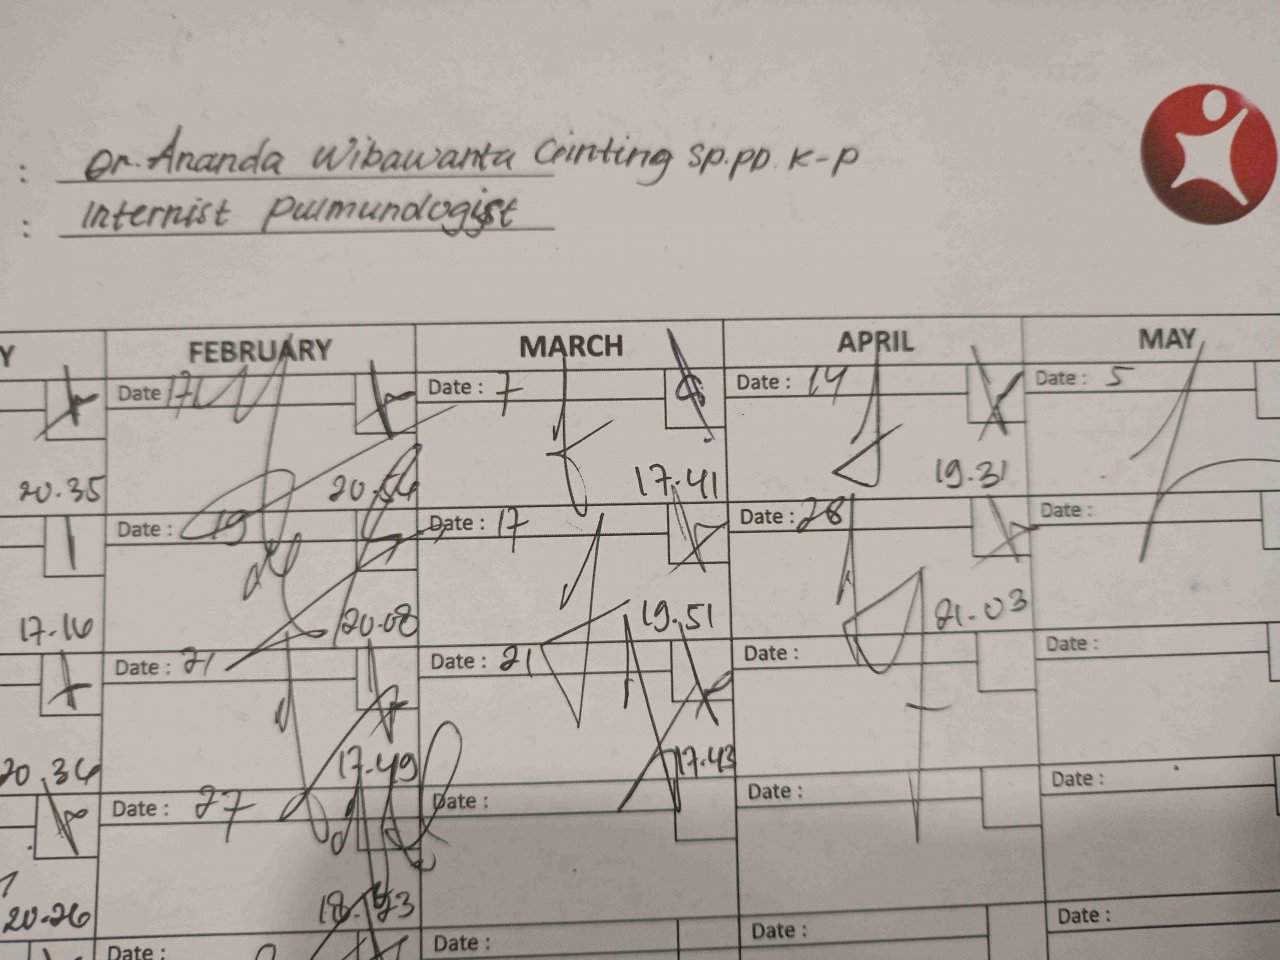 : Dr. Ananda Wibawanta Ginting Sp.PD. K-P
: Internist Pulmundologist
Y FEBRUARY MARCH APRIL MAY
Date 17 Date : 7 Date : 14 Date : 5
20.35 20.54 17.41 19.31
Date : 19 Date : 17 Date : 28 Date :
17.16 20.08 19.51 21.03
Date : 21 Date : 21 Date : Date :
20.34 17.49 17.43
Date : 27 Date : Date : Date :
20.26 18.43
Date : Date : Date : Date :